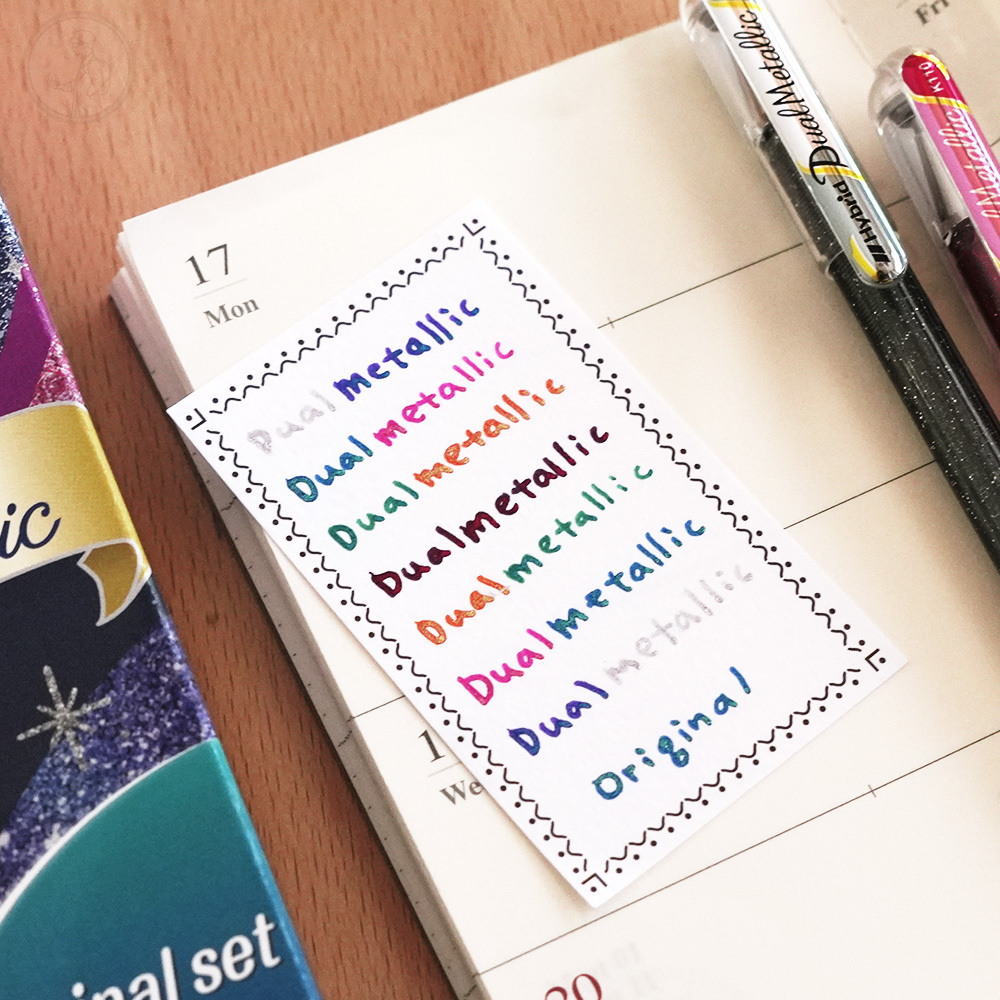 17
Mon
Dual metallic
Dual metallic
Dual metallic
Dual metallic
Dual metallic
Dual metallic
Dual metallic
Original
Hybrid DualMetallic
Metallic K110
Fri
ic
inal set
1
We
20